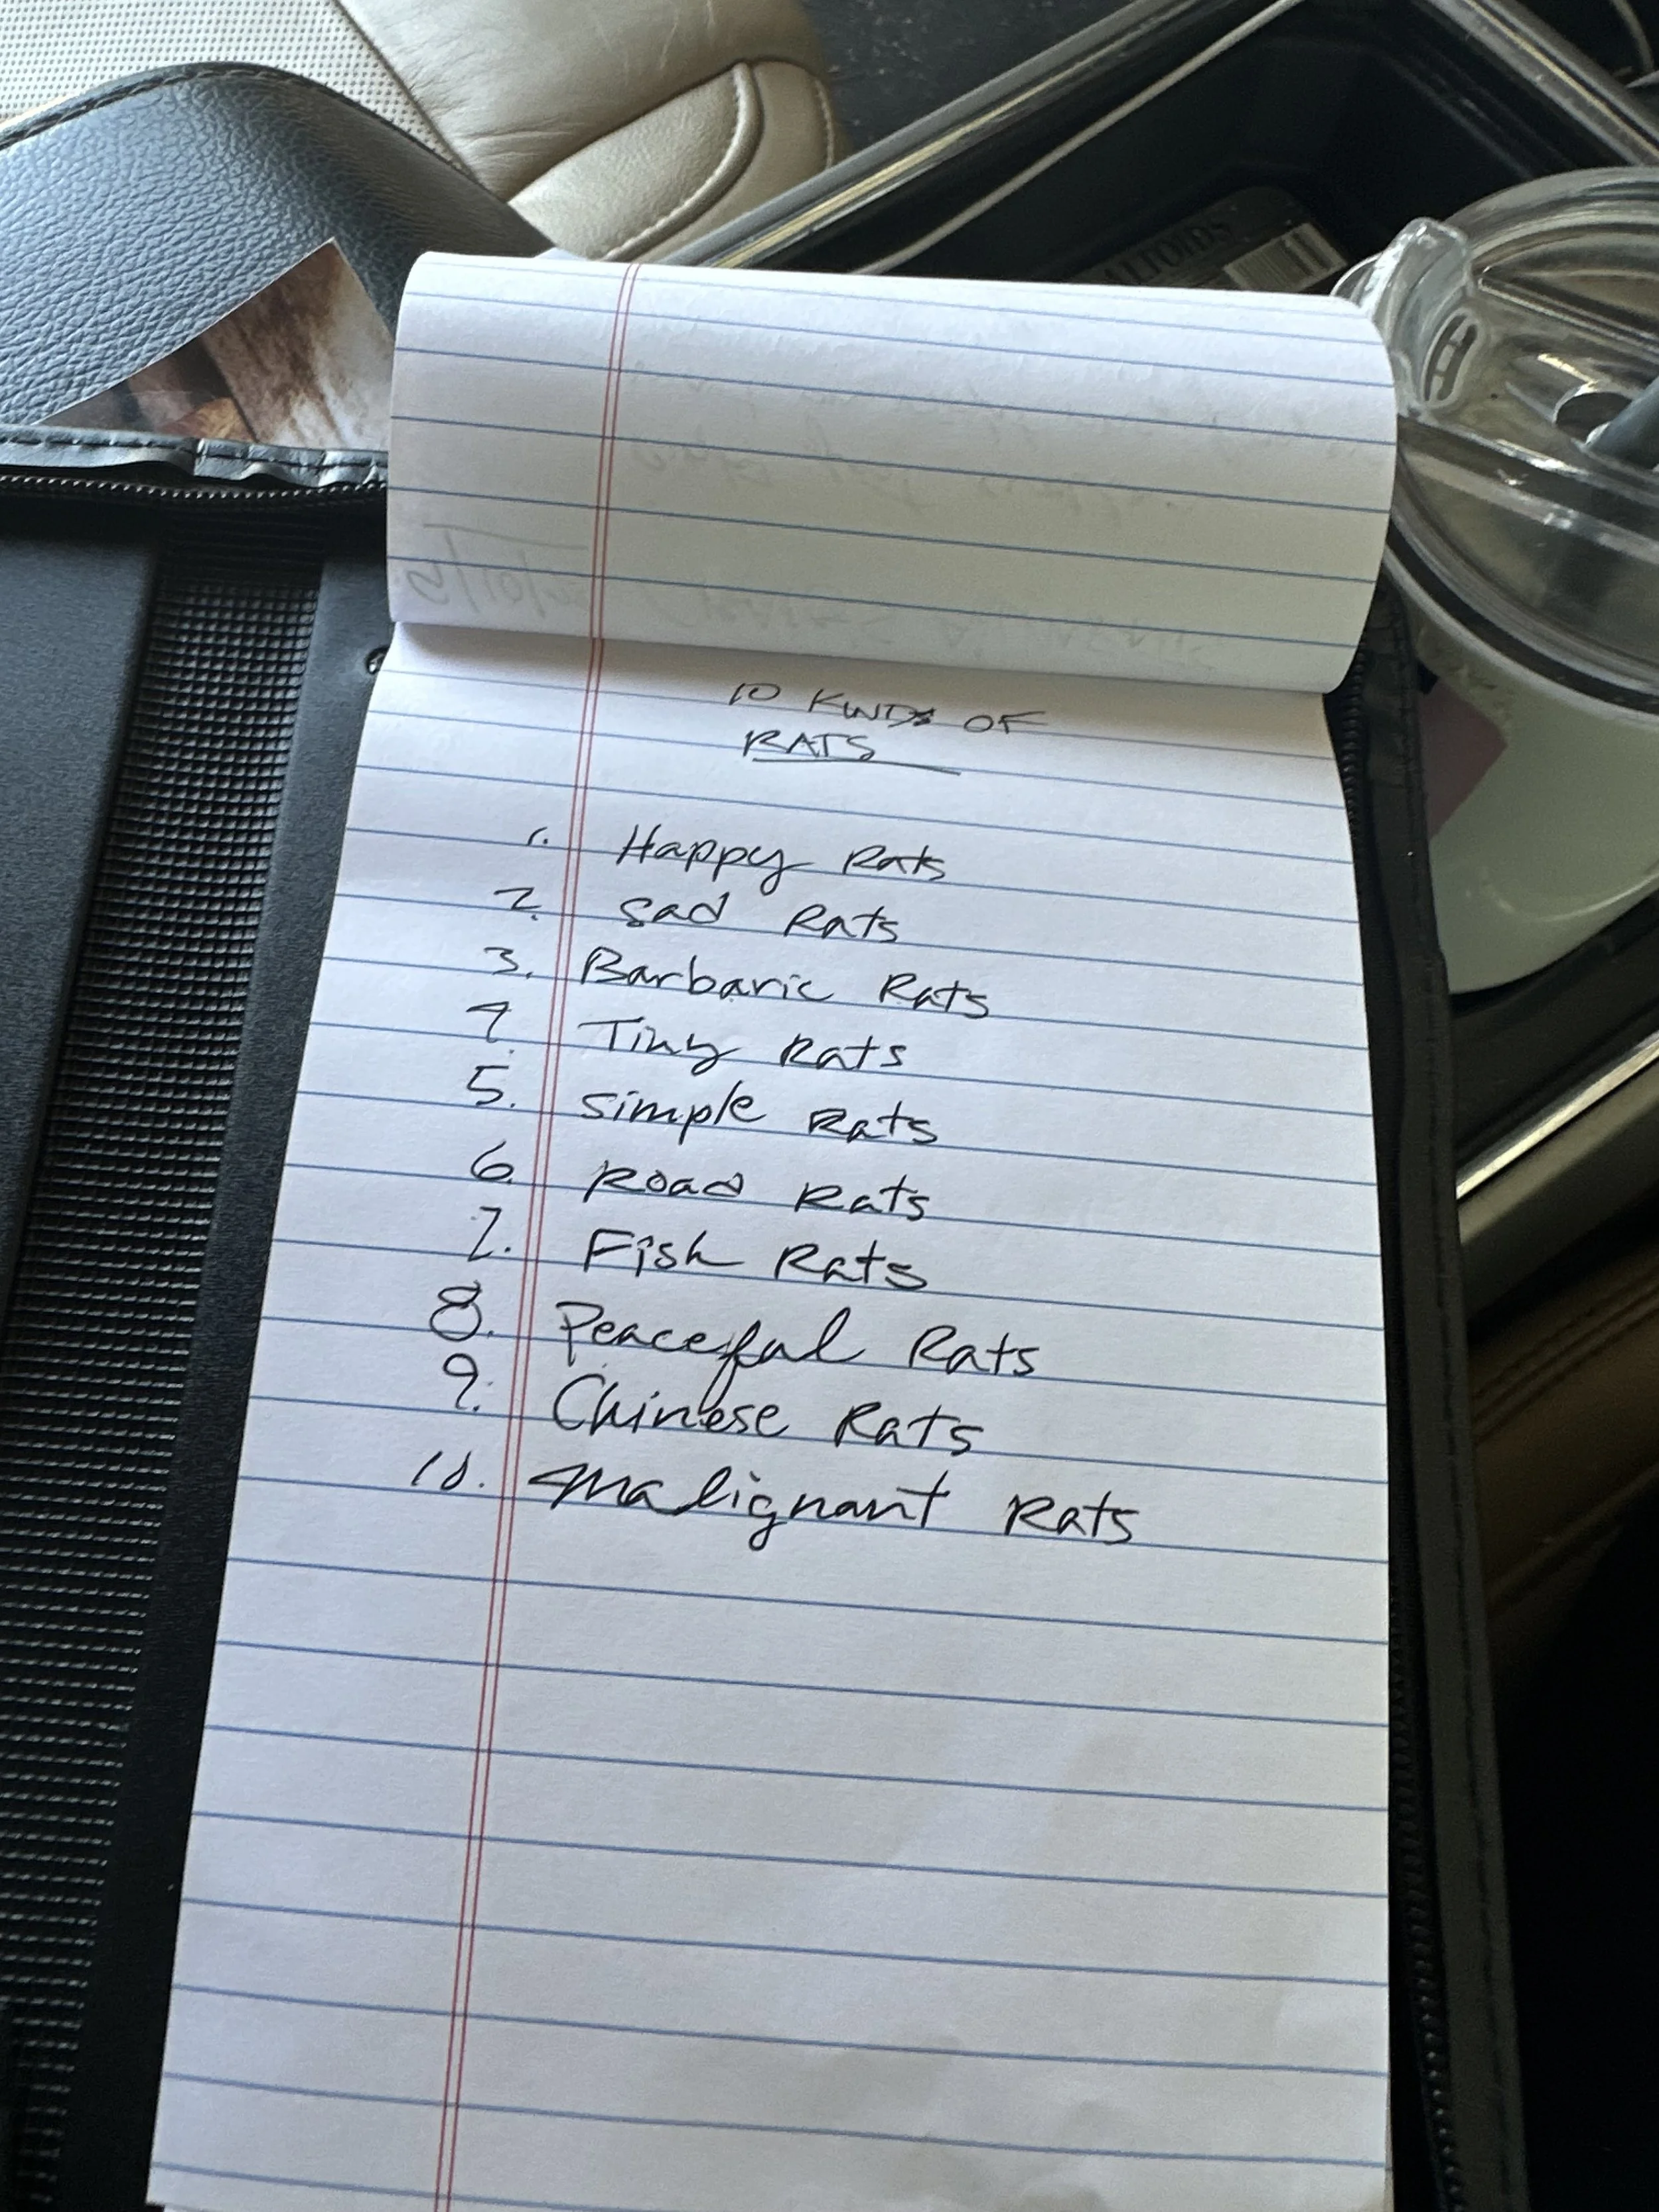 ALTOIDS
10 KINDS OF
RATS
1. Happy Rats
2. Sad Rats
3. Barbaric Rats
4. Tiny Rats
5. Simple Rats
6. Road Rats
7. Fish Rats
8. Peaceful Rats
9. Chinese Rats
10. Malignant Rats